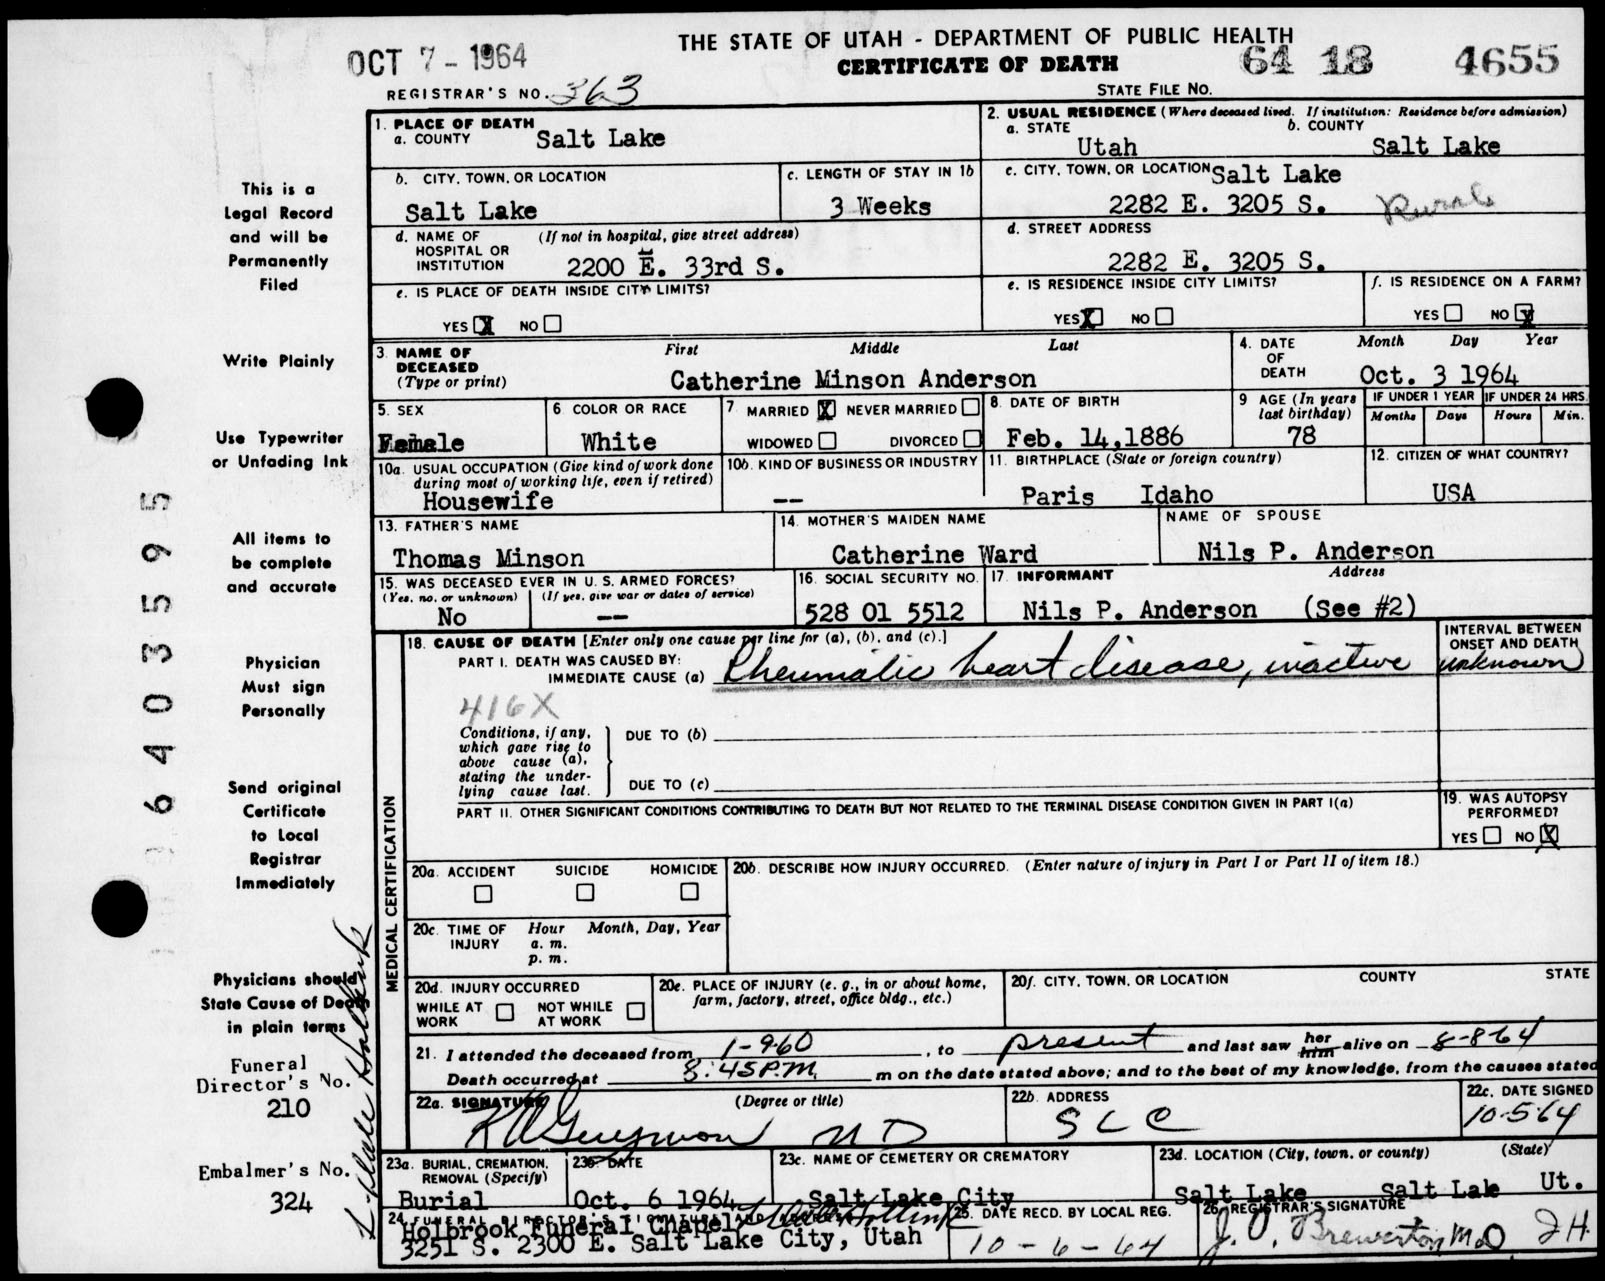 THE STATE OF UTAH - DEPARTMENT OF PUBLIC HEALTH
OCT 7 - 1964
CERTIFICATE OF DEATH
64 18 4655
REGISTRAR'S NO. 363
STATE FILE No.
1. PLACE OF DEATH
a. COUNTY Salt Lake
2. USUAL RESIDENCE (Where deceased lived. If institution: Residence before admission)
a. STATE Utah
b. COUNTY Salt Lake
b. CITY, TOWN, OR LOCATION
Salt Lake
c. LENGTH OF STAY IN 1b
3 Weeks
c. CITY, TOWN, OR LOCATION Salt Lake
2282 E. 3205 S. Rural
d. NAME OF (If not in hospital, give street address)
HOSPITAL OR
INSTITUTION 2200 E. 33rd S.
d. STREET ADDRESS
2282 E. 3205 S.
e. IS PLACE OF DEATH INSIDE CITY LIMITS?
YES X NO
e. IS RESIDENCE INSIDE CITY LIMITS?
YES X NO
f. IS RESIDENCE ON A FARM?
YES NO X
3. NAME OF
DECEASED
(Type or print)
First Middle Last
Catherine Minson Anderson
4. DATE
OF
DEATH
Month Day Year
Oct. 3 1964
5. SEX
Female
6. COLOR OR RACE
White
7. MARRIED X NEVER MARRIED
WIDOWED DIVORCED
8. DATE OF BIRTH
Feb. 14,1886
9 AGE (In years
last birthday)
78
IF UNDER 1 YEAR
Months Days
IF UNDER 24 HRS.
Hours Min.
10a. USUAL OCCUPATION (Give kind of work done
during most of working life, even if retired)
Housewife
10b. KIND OF BUSINESS OR INDUSTRY
--
11. BIRTHPLACE (State or foreign country)
Paris Idaho
12. CITIZEN OF WHAT COUNTRY?
USA
13. FATHER'S NAME
Thomas Minson
14. MOTHER'S MAIDEN NAME
Catherine Ward
NAME OF SPOUSE
Nils P. Anderson
15. WAS DECEASED EVER IN U. S. ARMED FORCES?
(Yes, no, or unknown) (If yes, give war or dates of service)
No --
16. SOCIAL SECURITY NO.
528 01 5512
17. INFORMANT Address
Nils P. Anderson (See #2)
MEDICAL CERTIFICATION
18. CAUSE OF DEATH [Enter only one cause per line for (a), (b), and (c).]
PART I. DEATH WAS CAUSED BY:
IMMEDIATE CAUSE (a) Rheumatic heart disease, inactive
INTERVAL BETWEEN
ONSET AND DEATH
unknown
416X
Conditions, if any,
which gave rise to
above cause (a),
stating the under-
lying cause last.
DUE TO (b)
DUE TO (c)
PART II. OTHER SIGNIFICANT CONDITIONS CONTRIBUTING TO DEATH BUT NOT RELATED TO THE TERMINAL DISEASE CONDITION GIVEN IN PART I(a)
19. WAS AUTOPSY
PERFORMED?
YES NO X
20a. ACCIDENT SUICIDE HOMICIDE
20b. DESCRIBE HOW INJURY OCCURRED. (Enter nature of injury in Part I or Part II of item 18.)
20c. TIME OF
INJURY
Hour Month, Day, Year
a. m.
p. m.
20d. INJURY OCCURRED
WHILE AT
WORK
NOT WHILE
AT WORK
20e. PLACE OF INJURY (e. g., in or about home,
farm, factory, street, office bldg., etc.)
20f. CITY, TOWN, OR LOCATION COUNTY STATE
21. I attended the deceased from 1-9-60, to present and last saw her him alive on 8-8-64
Death occurred at 8:45 P.M. m on the date stated above; and to the best of my knowledge, from the causes stated
22a. SIGNATURE (Degree or title)
MD
22b. ADDRESS
SLC
22c. DATE SIGNED
10-5-64
23a. BURIAL, CREMATION,
REMOVAL (Specify)
Burial
23b. DATE
Oct. 6 1964
23c. NAME OF CEMETERY OR CREMATORY
Salt Lake City
23d. LOCATION (City, town, or county) (State)
Salt Lake Salt Lake Ut.
24. FUNERAL DIRECTOR'S SIGNATURE AND ADDRESS
Holbrook Funeral Chapel
3251 S. 2300 E. Salt Lake City, Utah
25. DATE RECD. BY LOCAL REG.
10-6-64
26. REGISTRAR'S SIGNATURE
J. O. Brewerton, M.D. JH.
This is a
Legal Record
and will be
Permanently
Filed
Write Plainly
Use Typewriter
or Unfading Ink
All items to
be complete
and accurate
Physician
Must sign
Personally
Send original
Certificate
to Local
Registrar
Immediately
Physicians should
State Cause of Death
in plain terms
Funeral
Director's No.
210
Embalmer's No.
324